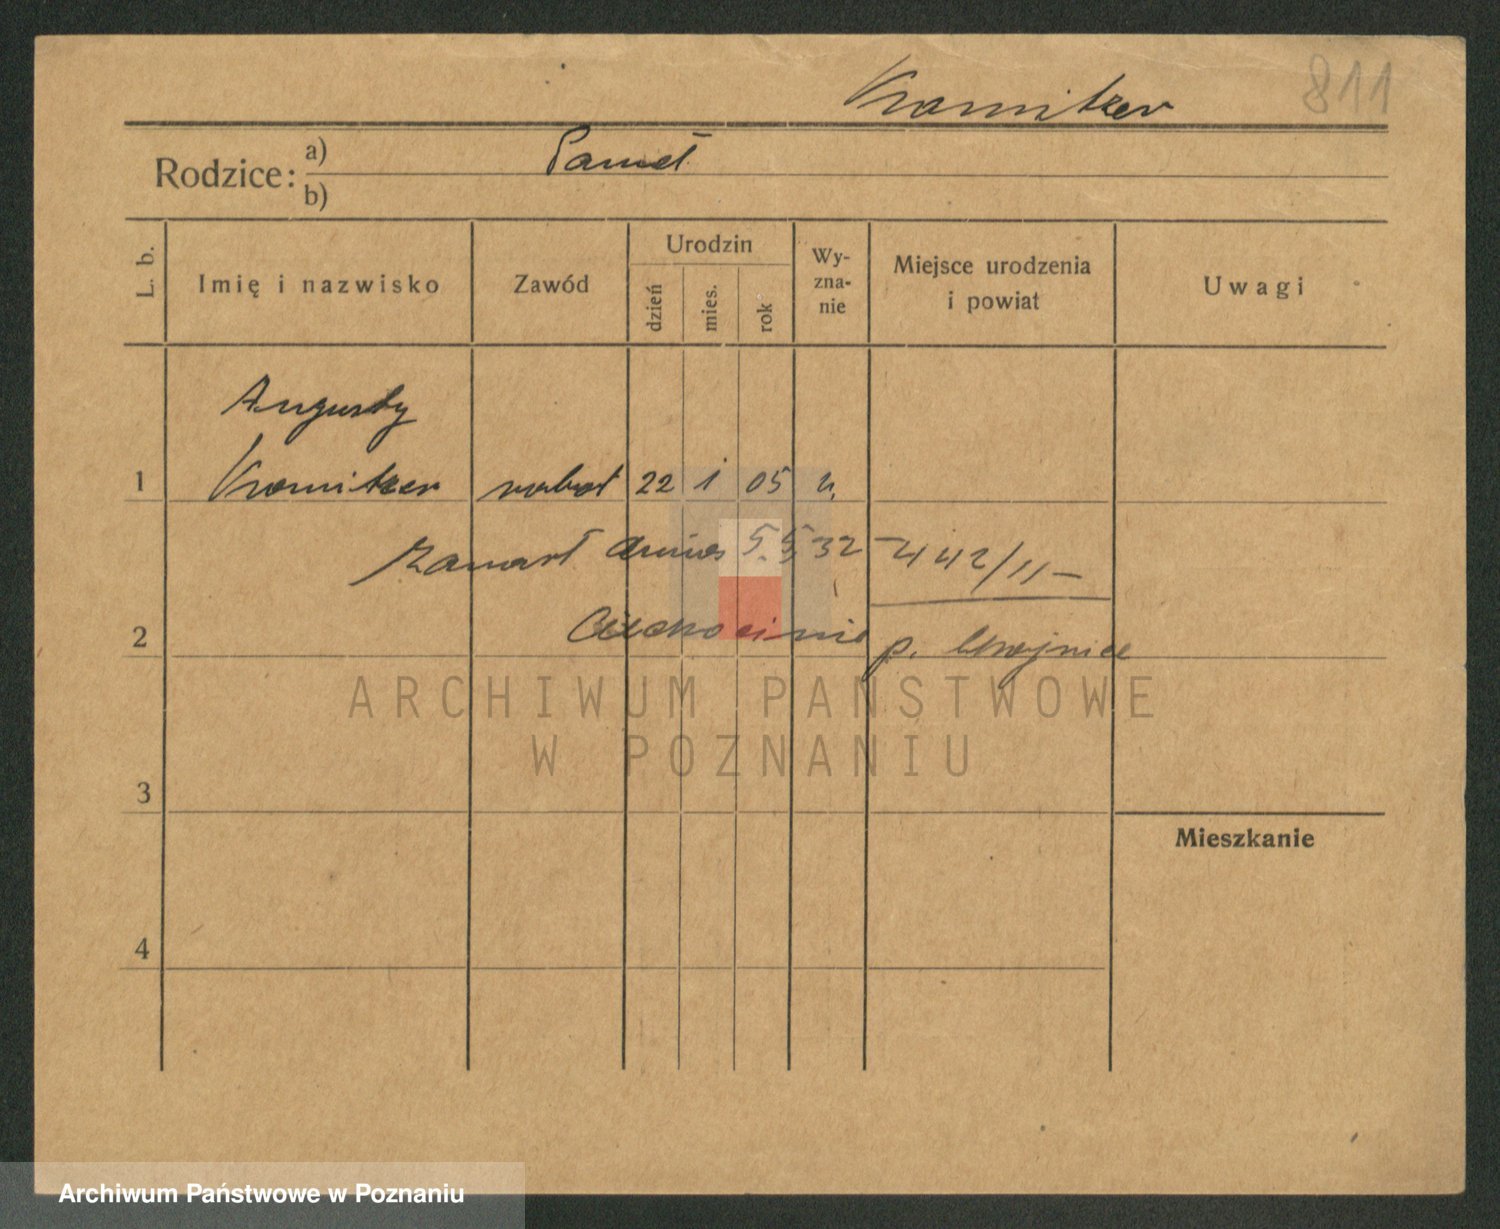 811
Kromitzer
Rodzice: a) Paweł
b)
L. b.
Imię i nazwisko
Zawód
Urodzin
dzień
mies.
rok
Wy-
zna-
nie
Miejsce urodzenia
i powiat
Uwagi
Augusty
1 Kromitzer robot 22 1 05
zmarł dnia 5.5.32 442/11-
2 Ciechocinie p. Chojnice
3
Mieszkanie
4
ARCHIWUM PAŃSTWOWE
W POZNANIU
Archiwum Państwowe w Poznaniu